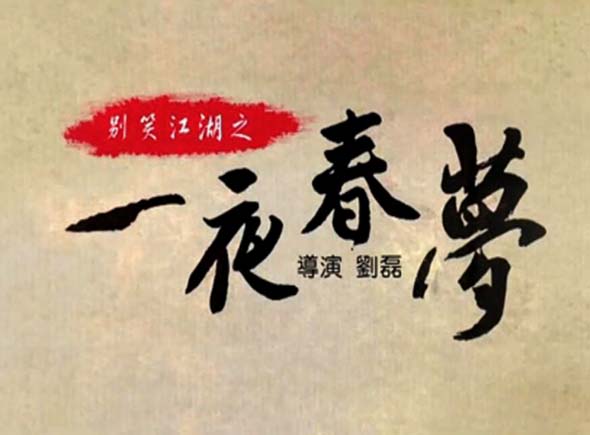 别笑江湖之
一夜春夢
導演 劉磊